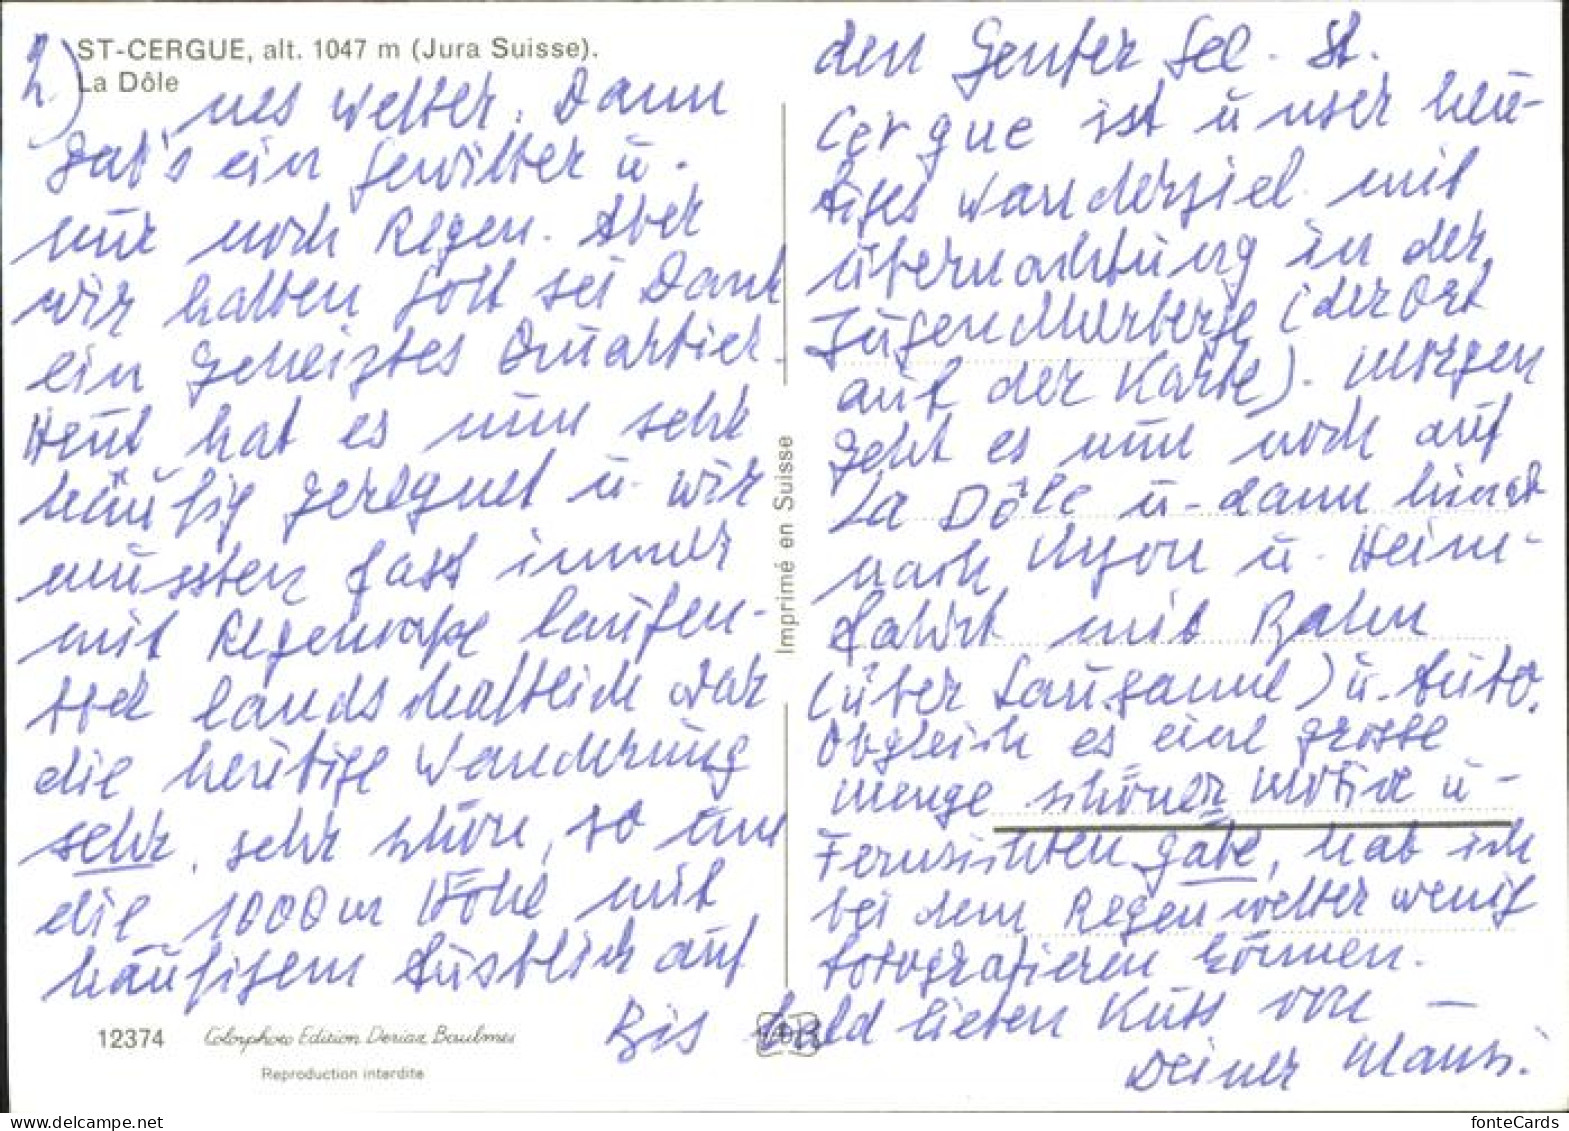 2)
ST-CERGUE, alt. 1047 m (Jura Suisse).
La Dôle
nes Wetter. Dann
gab's ein Gewitter u.
nur noch Regen. Aber
wir hatten Gott sei Dank
ein geheiztes Quartier.
Heut hat es nun sehr
häufig geregnet u. wir
mussten fast immer
mit Regencape laufen.
Aber landschaftlich war
die heutige Wanderung
sehr, sehr schön, so um
die 1000 m Höhe mit
häufigem Ausblick auf
12374
Colorphoto Edition Deriaz Baulmes
Reproduction interdite
Imprimé en Suisse
den Genfer See. St.
Cergue ist unser heu-
tiges Wanderziel mit
Übernachtung in der
Jugendherberge (der Ort
auf der Karte). Morgen
geht es nun noch auf
La Dôle u. dann hinab
nach Nyon u. Heim-
fahrt mit Bahn
(über Lausanne) u. Auto.
Obgleich es eine grosse
Menge schöner Motive u.
Fernsichten gäbe, hab ich
bei dem Regenwetter wenig
fotografieren können.
Bis bald lieben Kuss von –
Deiner Mausi.
www.delcampe.net
fonteCards